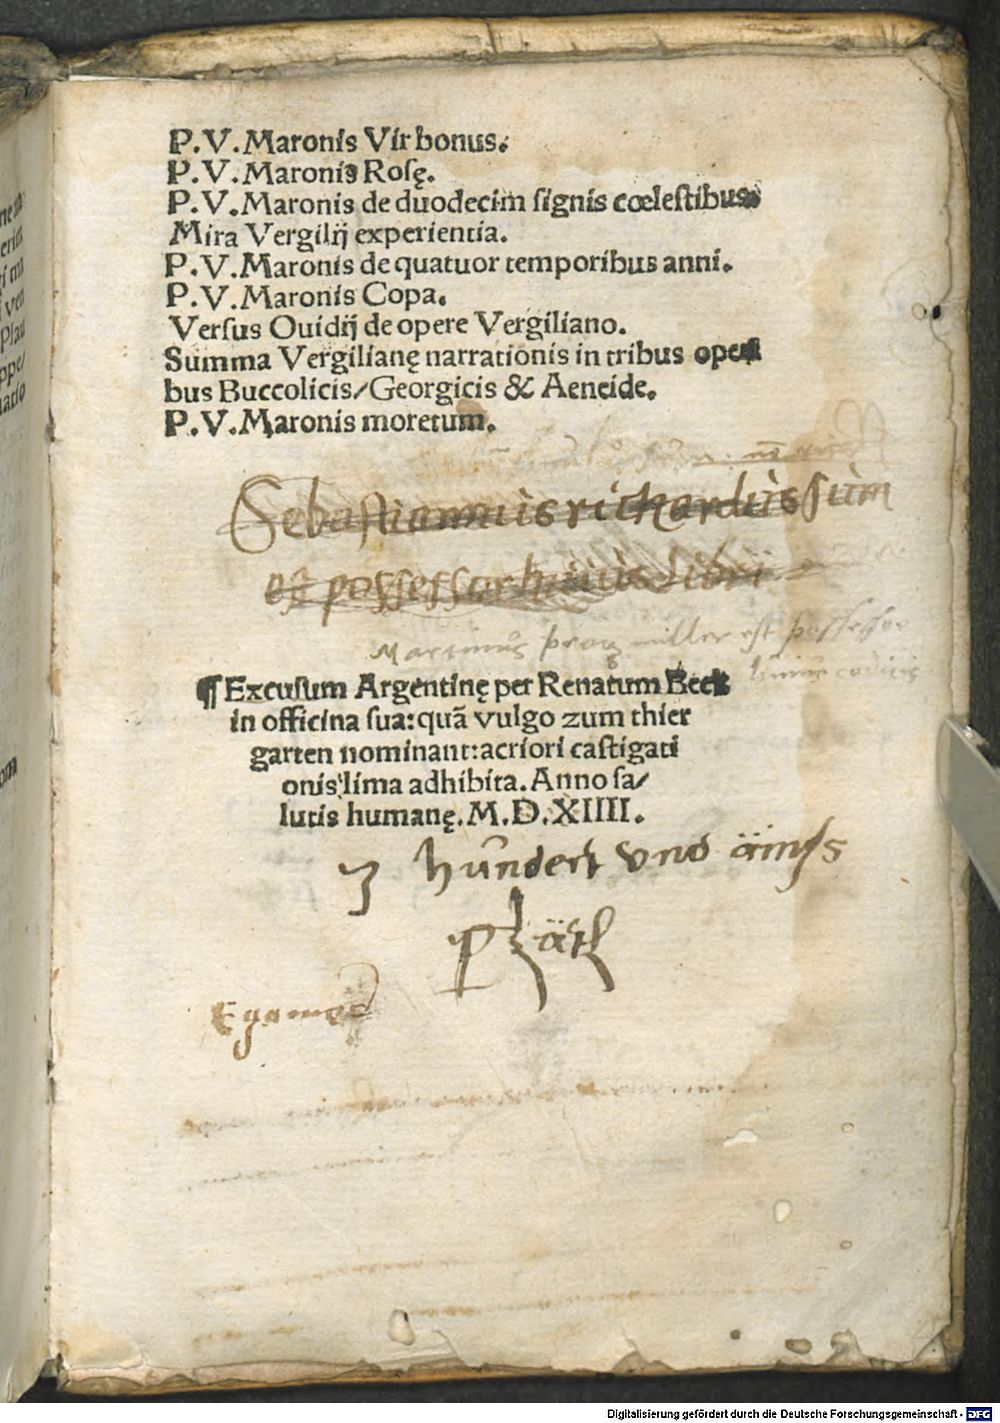 P.V.Maronis Vir bonus.
P.V.Maronis Rosę.
P.V.Maronis de duodecim signis cœlestibus
Mira Vergilij experientia.
P.V.Maronis de quatuor temporibus anni.
P.V.Maronis Copa.
Versus Ouidij de opere Vergiliano.
Summa Vergilianę narrationis in tribus operi
bus Buccolicis/Georgicis & Aeneide.
P.V.Maronis moretum.
Sebastiannus richardus sum
est possessor huius libri
Martinus miller est possessor
huius codicis
¶Excusum Argentinę per Renatum Beck
in officina sua:quā vulgo zum thier
garten nominant:acriori castigati
onis lima adhibita.Anno sa/
lutis humanę.M.D.XIIII.
3 hundert vnd äins